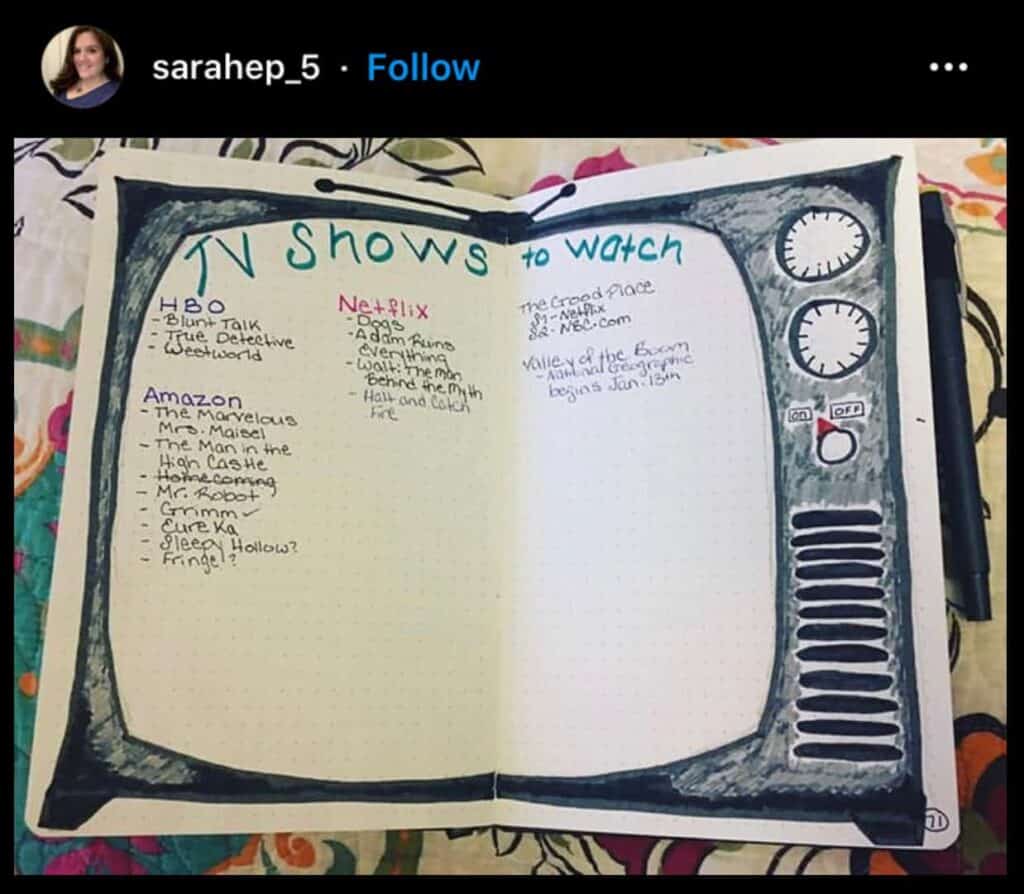 sarahep_5 · Follow
TV Shows to Watch
HBO
- Blunt Talk
- True Detective
- Westworld
Amazon
- The Marvelous
Mrs. Maisel
- The Man in the
High Castle
- Homecoming
- Mr. Robot
- Grimm ✓
- Eureka
- Sleepy Hollow?
- Fringe?
Netflix
- Dogs
- Adam Ruins
Everything
- Walt: The Man
Behind the Myth
- Halt and Catch
Fire
The Good Place
S1 - Netflix
S2 - NBC.com
Valley of the Boom
- National Geographic
begins Jan. 13th
on OFF
71